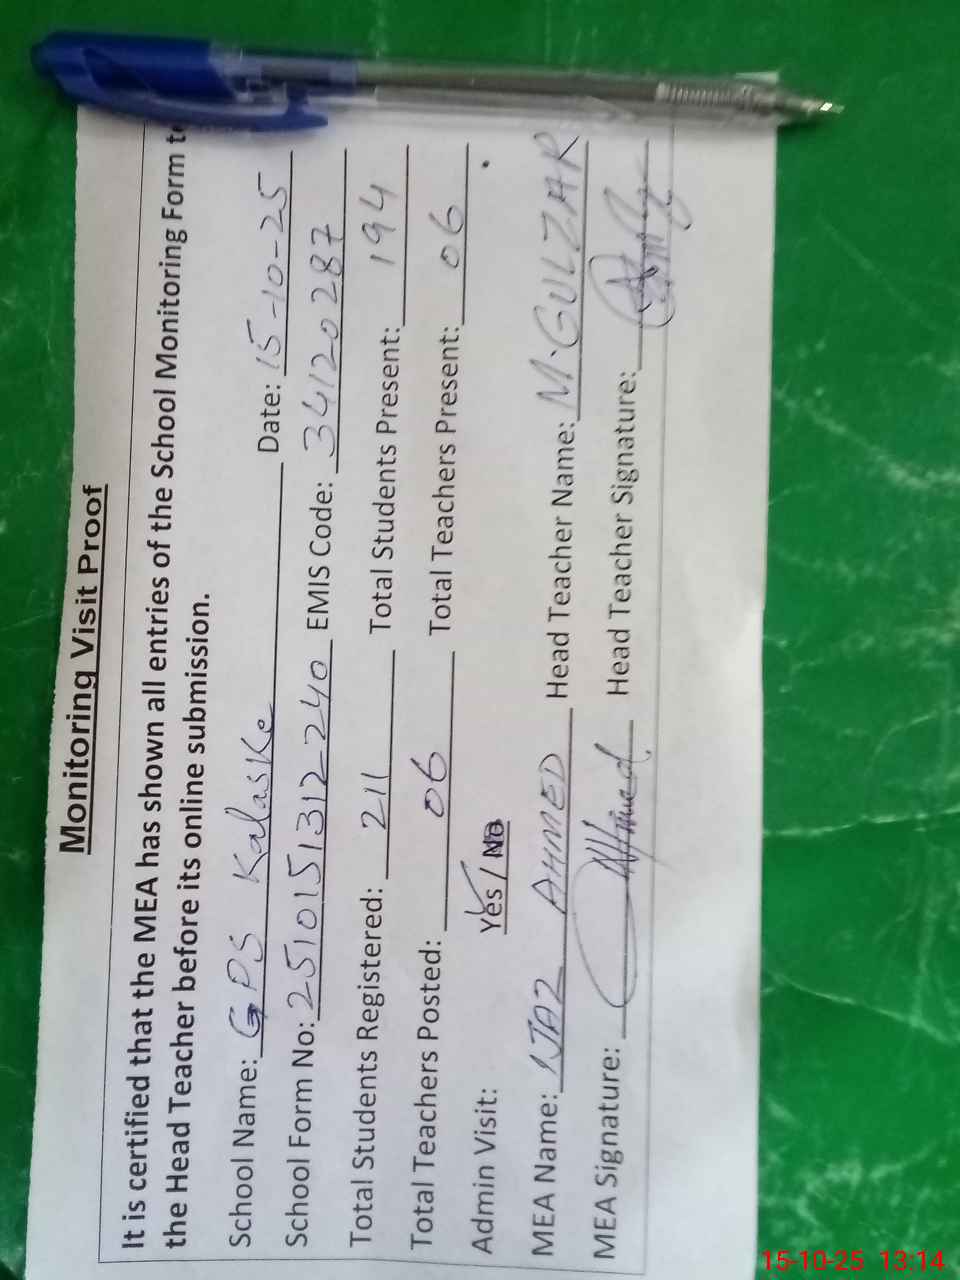 Monitoring Visit Proof
It is certified that the MEA has shown all entries of the School Monitoring Form to
the Head Teacher before its online submission.
School Name: GPS Kalaske Date: 15-10-25
School Form No: 2510151312240 EMIS Code: 34120287
Total Students Registered: 211 Total Students Present: 194
Total Teachers Posted: 06 Total Teachers Present: 06
Admin Visit: Yes / No
MEA Name: IJAZ AHMED Head Teacher Name: M. GULZAR
MEA Signature: Ahmed Head Teacher Signature:
15-10-25 13:14